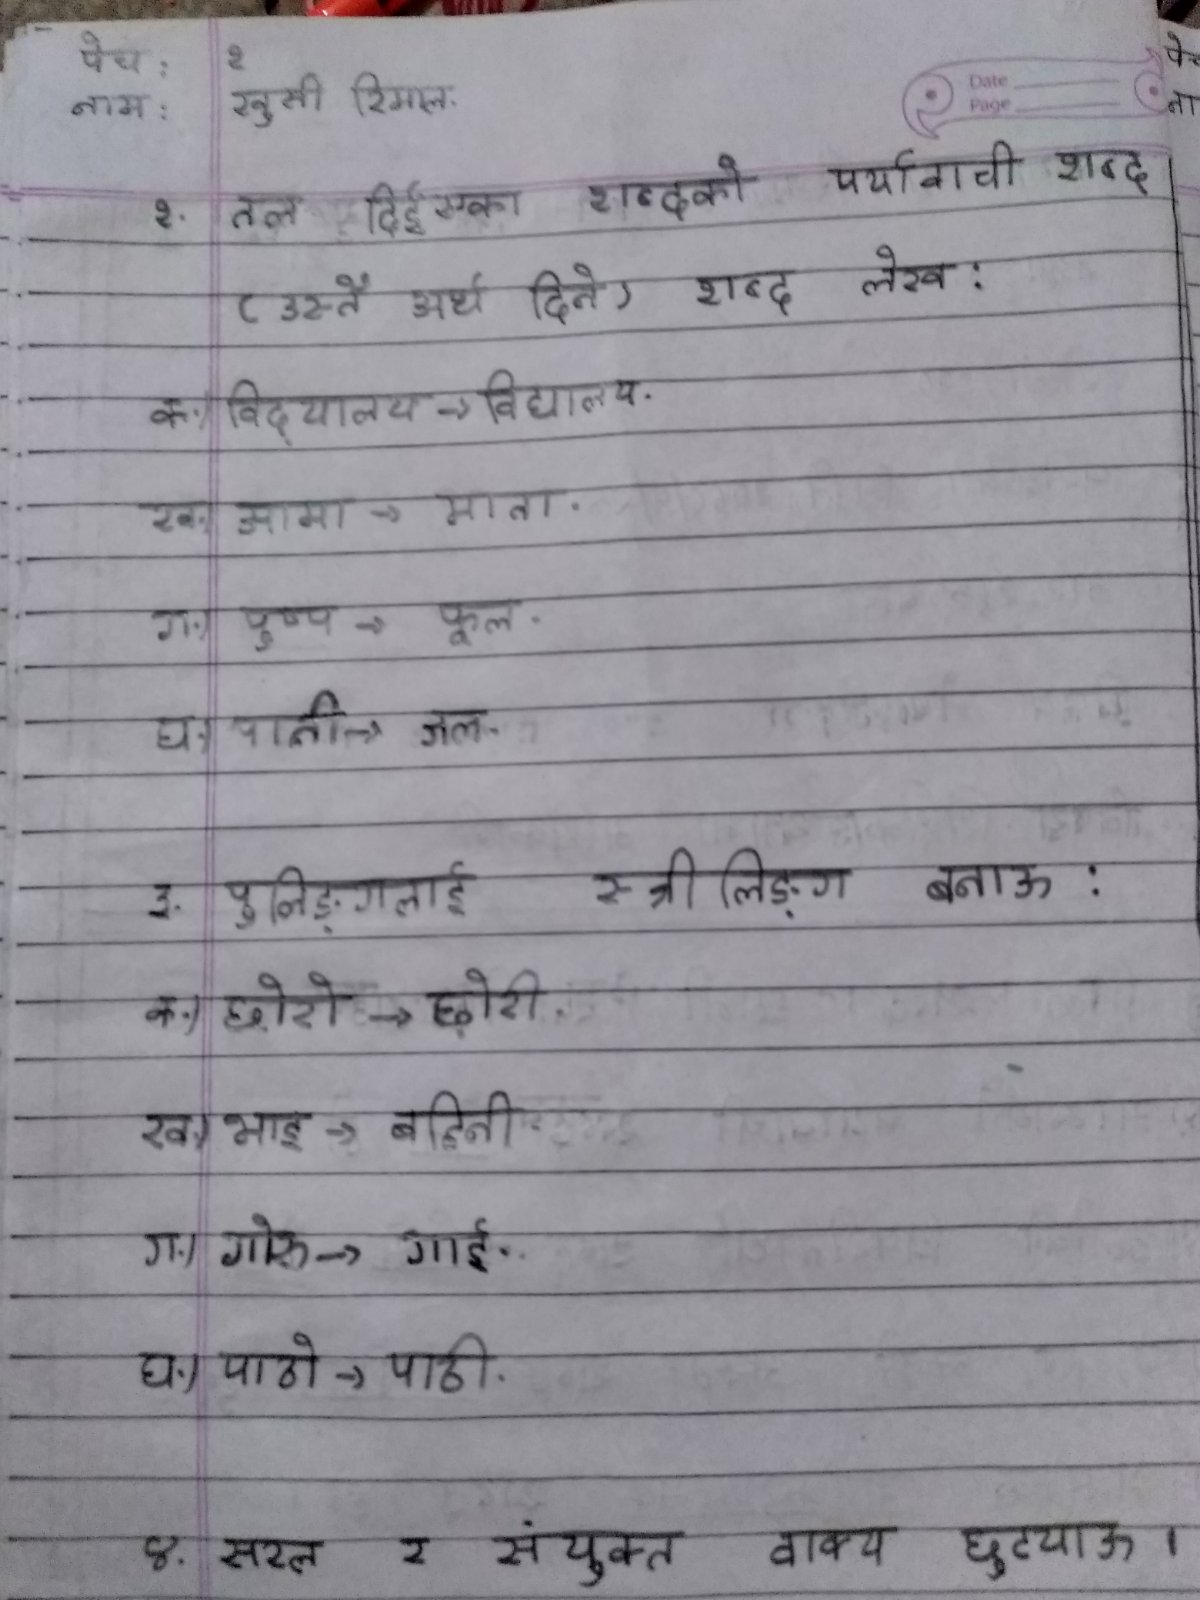 पेच : १
नाम : खुसी रिमाल.
Date
Page
पे
ना
१. तल दिईएका शब्दको पर्यावाची शब्द
( उस्तै अर्थ दिने) शब्द लेख :
क.) विद्‌यालय → विद्यालय.
ख.) आमा → माता.
ग.) पुष्प → फूल.
घ.) पानी → जल.
३. पुलिङ्‌गलाई स्त्रीलिङ्‌ग बनाऊ :
क.) छोरो → छोरी.
ख.) भाइ → बहिनी
ग.) गोरु → गाई.
घ.) पाठो → पाठी.
४. सरल र संयुक्त वाक्य छुटयाऊ ।